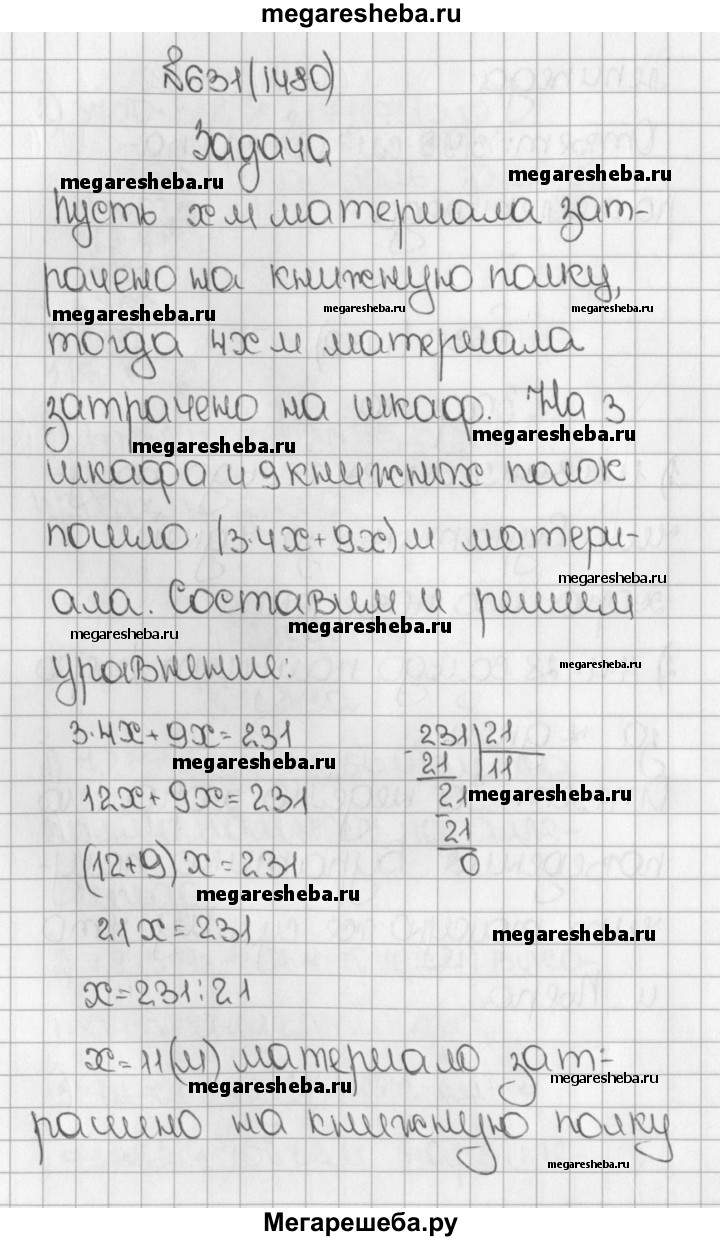 megaresheba.ru
№631(1480)
Задача
megaresheba.ru megaresheba.ru
Пусть x м материала зат-
рачено на книжную полку,
megaresheba.ru megaresheba.ru megaresheba.ru
тогда 4x м материала
затрачено на шкаф. На 3
megaresheba.ru megaresheba.ru
шкафа и 9 книжных полок
пошло (3·4x+9x) м матери-
megaresheba.ru
ала. Составим и решим
megaresheba.ru megaresheba.ru
уравнение:
megaresheba.ru
3·4x+9x=231 231|21
megaresheba.ru 21 11
12x+9x=231 21 megaresheba.ru
21
(12+9)x=231 0
megaresheba.ru
21x=231 megaresheba.ru
x=231:21
x=11(м) материало зат-
megaresheba.ru megaresheba.ru
рачино на книжную полку
megaresheba.ru
Мегарешеба.ру